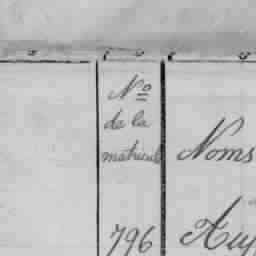 Nº
de la
matricule
Noms
796